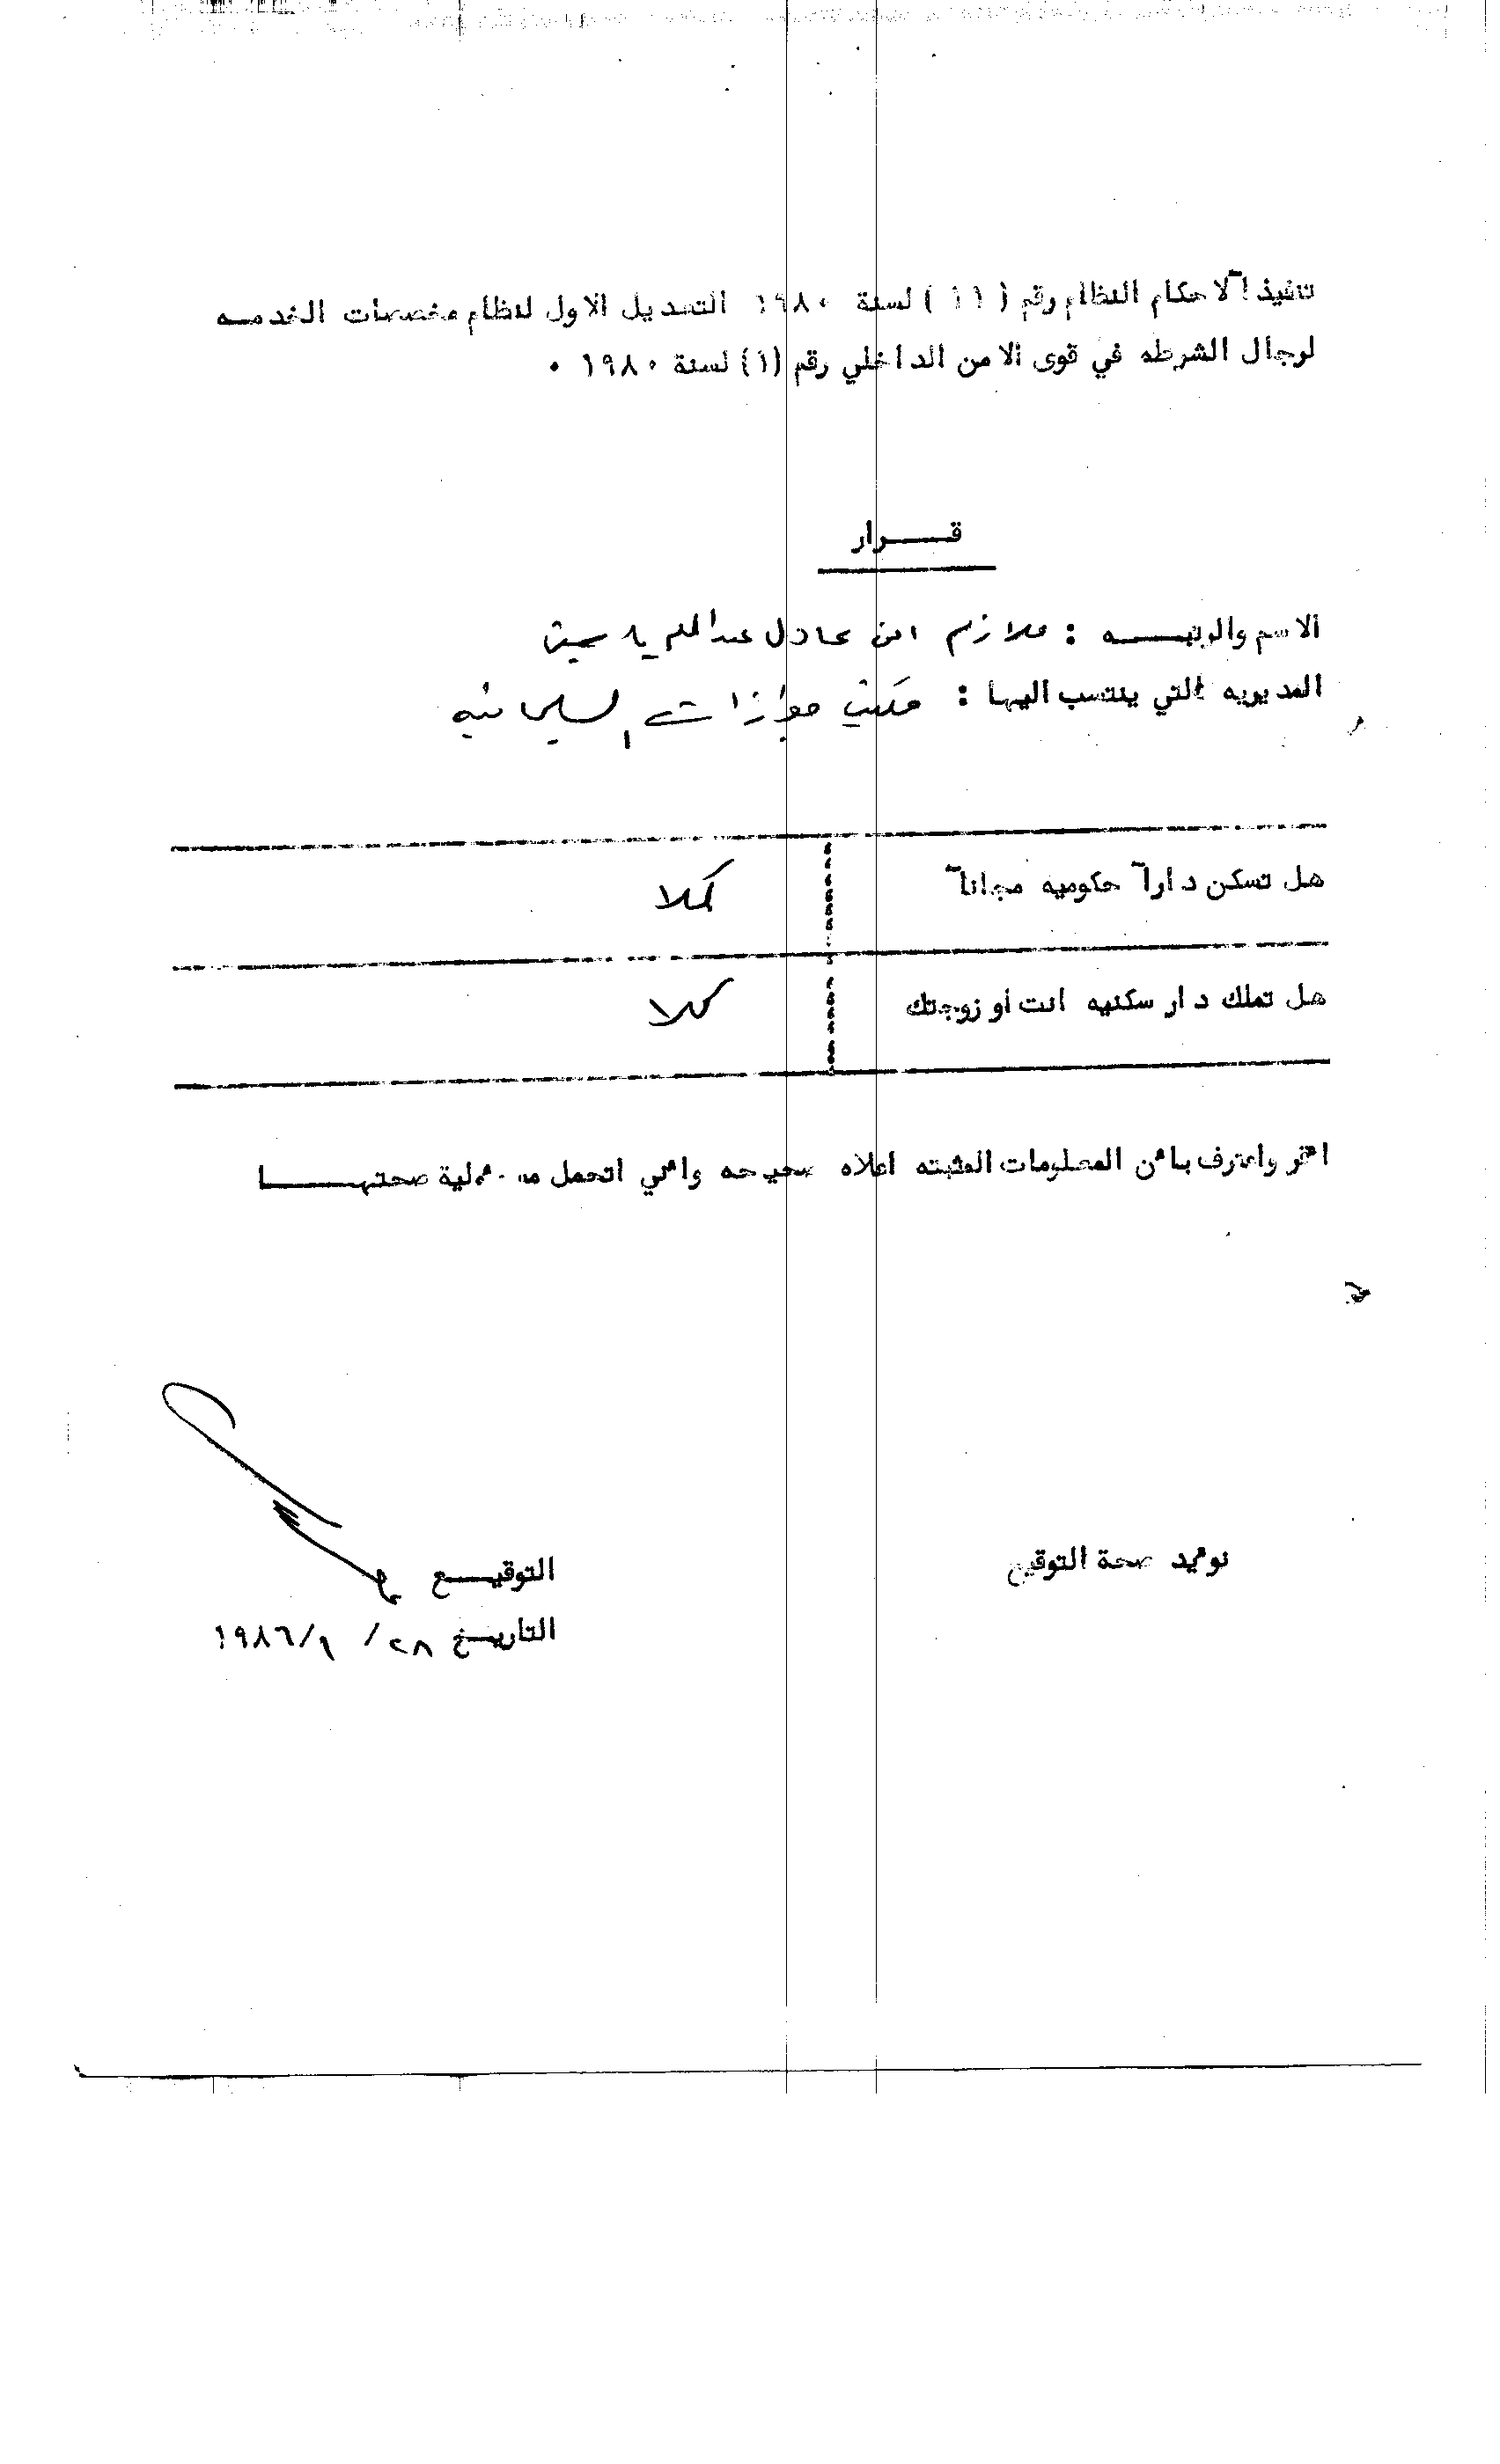 تنفيذاً لاحكام النظام رقم ( ١١ ) لسنة ١٩٨٠ التعديل الاول لنظام مخصصات الخدمــه
لرجال الشرطه في قوى الامن الداخلي رقم (١) لسنة ١٩٨٠ ٠
قـــرار
الاسم والرتبـــــه : ملازم امن عادل عبد
المديريه التي ينتسب اليها : مكتب جوازات السليمانيه
هل تسكن داراً حكوميه مجاناً كلا
هل تملك دار سكنيه انت أو زوجتك كلا
اقر واعترف بائن المعلومات المثبته اعلاه صحيحه وائني اتحمل مسئولية صحتهـــــا
نوئيد صحة التوقيع
التوقيــع
التاريـخ ٢٨/ ٩/١٩٨٦